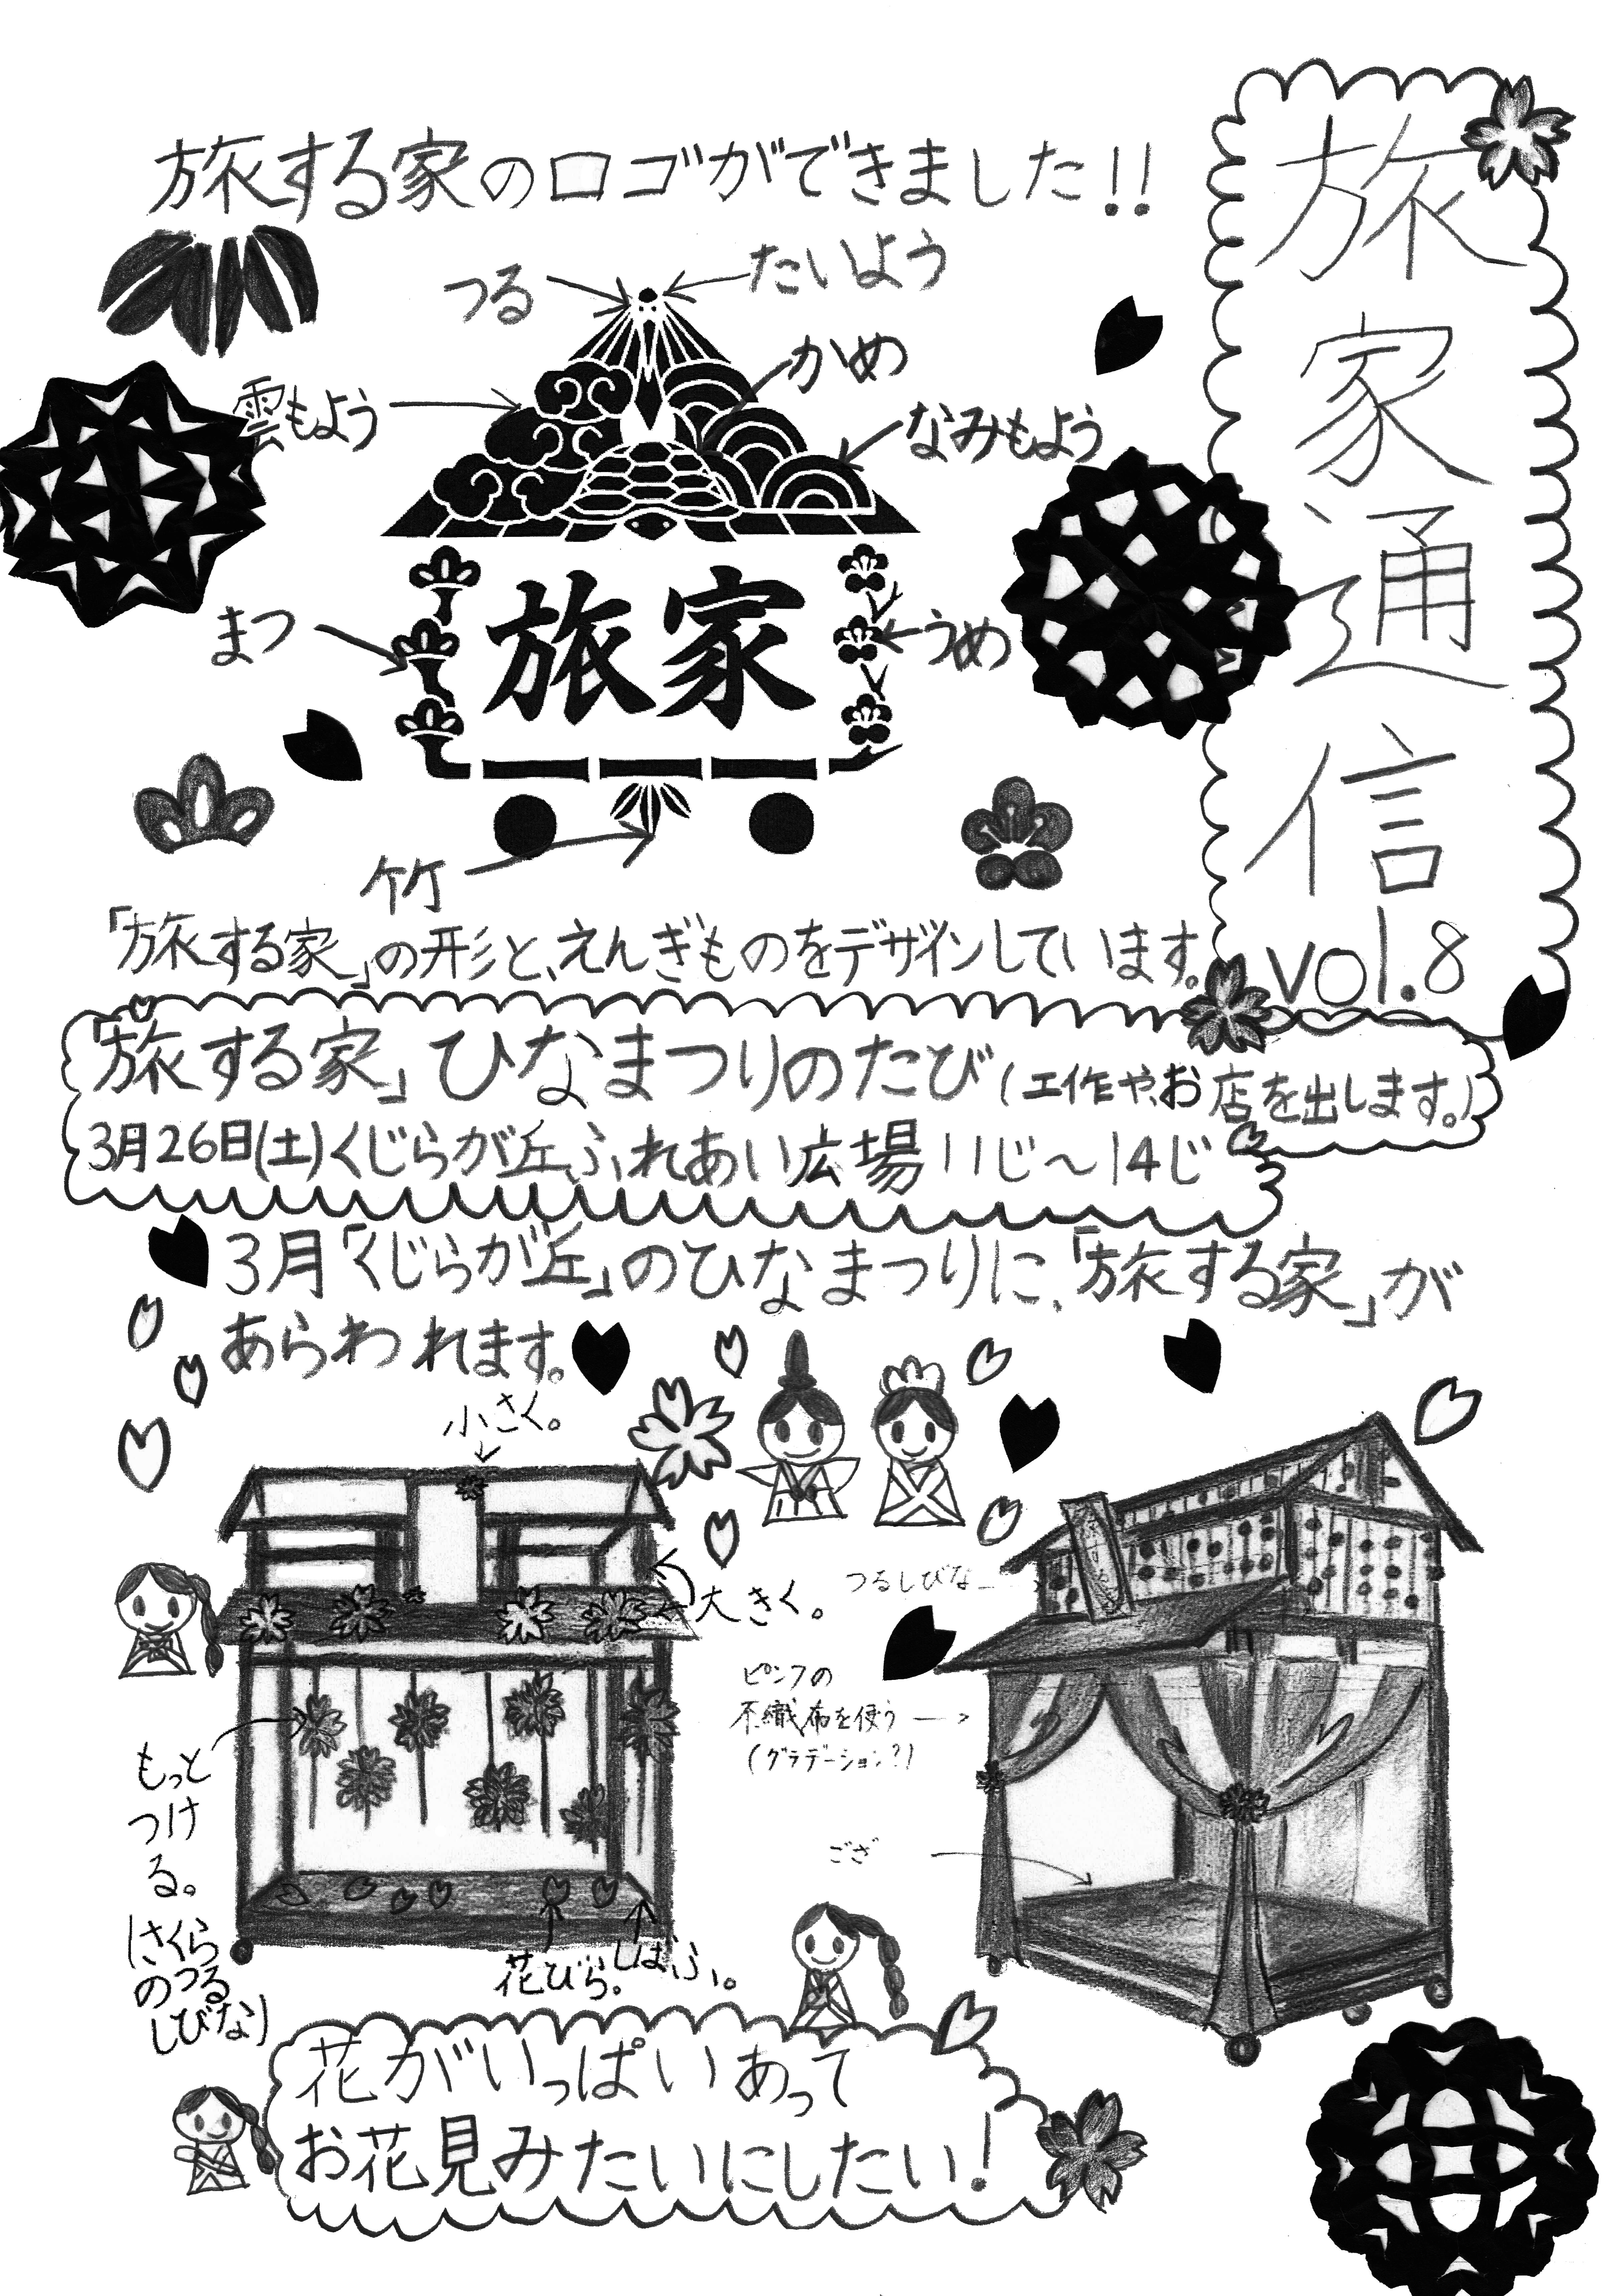 旅家通信
vol.8
旅する家のロゴができました!!
つる
たいよう
かめ
雲もよう
なみもよう
まつ
旅家
うめ
竹
「旅する家」の形と、えんぎものをデザインしています。
「旅する家」ひなまつりのたび(工作や、お店を出します。)
3月26日(土)くじらが丘ふれあい広場11じ〜14じ
3月「くじらが丘」のひなまつりに、「旅する家」が
あらわれます。
小さく。
大きく。
つるしびな
ピンクの
不織布を使う
(グラデーション?)
もっと
つけ
る。
(さくら
のつる
しびな)
ござ
花びら。
しばふ。
花がいっぱいあって
お花見みたいにしたい!